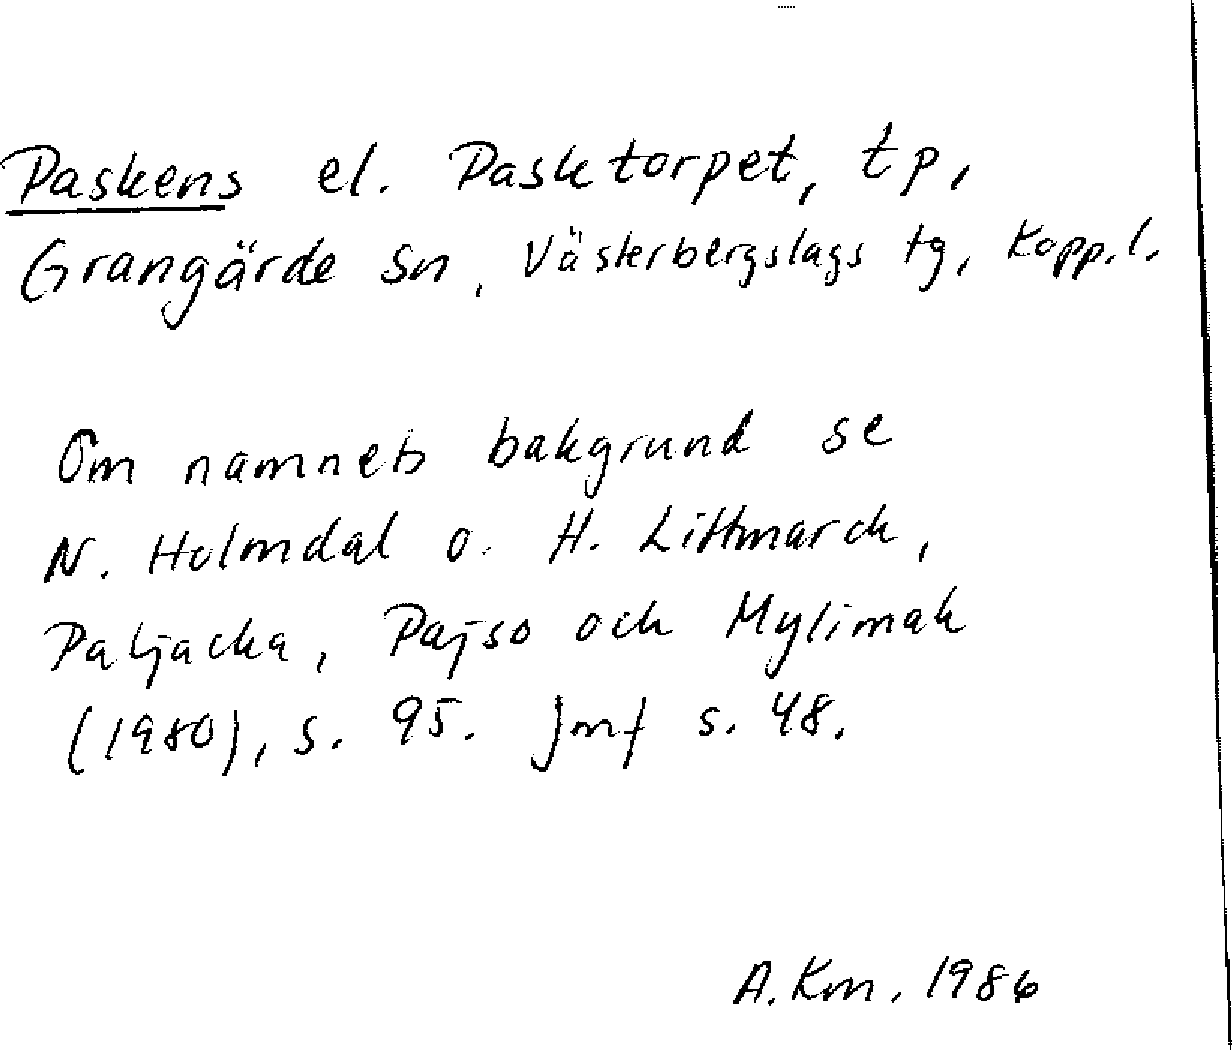 Paskens el. Pasktorpet, tp,
Grangärde sn, Västerbergslags tg, Kopp.l.
Om namnets bakgrund se
N. Holmdal o. H. Littmarck,
Paljacka, Pajso och Mylimak
(1980), s. 95. Jmf s. 48.
A.Km. 1986